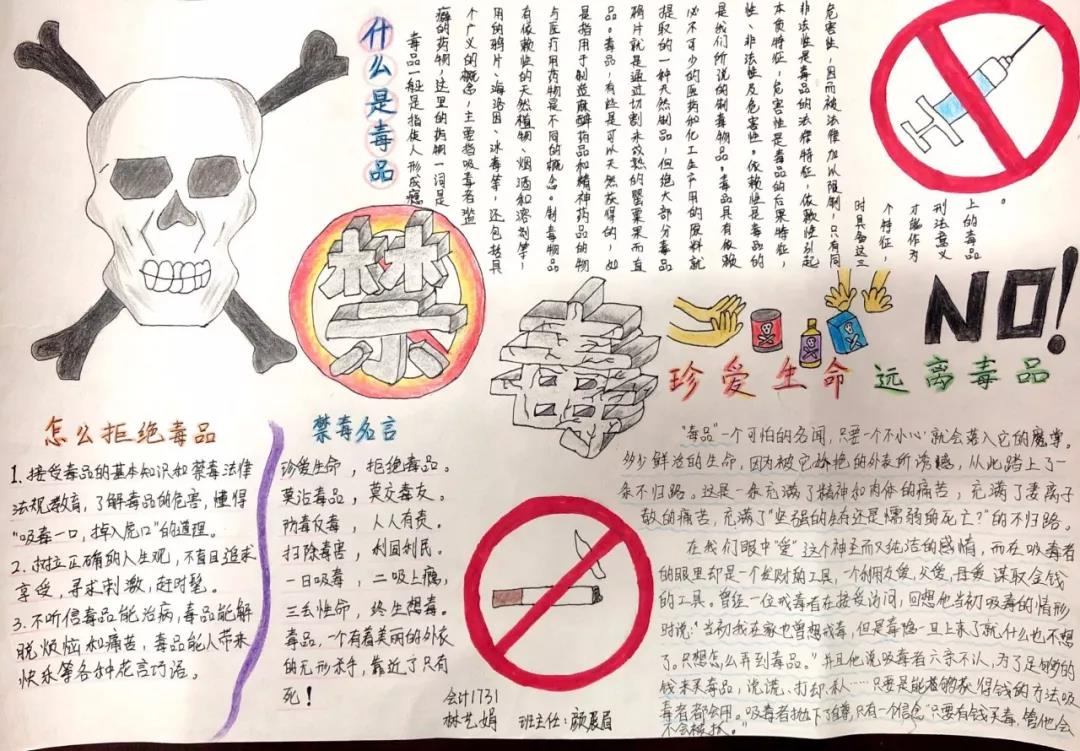 什么是毒品
毒品一般是指使人形成瘾
癖的药物,这里的药物一词是
个广义的概念,主要指吸毒者滥
用的鸦片、海洛因、冰毒等,还包括具
有依赖性的天然植物、烟酒和溶剂等,
与医疗用药物是不同的概念。制毒物品
是指用于制造麻醉药品和精神药品的物
品。毒品,有些是可以天然获得的,如
鸦片就是通过切割未成熟的罂粟果而直
提取的一种天然制品,但绝大部分毒品
必不可少的医药和化工生产用的原料就
是我们所说的制毒物品。毒品具有依赖
性、非法性及危害性。依赖性是毒品的
本质特征,危害性是毒品的后果特征,
非法性是毒品的法律特征,依赖性引起
危害性,因而被法律加以限制,只有同
时具备这三
个特征,
才能作为
刑法意义
上的毒品
。
禁
毒
NO!
珍爱生命 远离毒品
怎么拒绝毒品
1.接受毒品的基本知识和禁毒法律
法规教育,了解毒品的危害,懂得
“吸毒一口,掉入虎口”的道理。
2.树立正确的人生观,不盲目追求
享受,寻求刺激,赶时髦。
3.不听信毒品能治病,毒品能解
脱烦恼和痛苦,毒品能人带来
快乐等各种花言巧语。
禁毒名言
珍爱生命,拒绝毒品。
莫沾毒品,莫交毒友。
防毒反毒,人人有责。
扫除毒害,利国利民。
一日吸毒,二吸上瘾,
三丢性命,终生想毒。
毒品,一个有着美丽的外衣
的无形杀手,靠近了只有
死!
会计1731
林艺娟 班主任:颜眉
“毒品”一个可怕的名词,只要一个不小心就会落入它的魔掌。
多少鲜活的生命,因为被它艳的外表所诱惑,从此踏上了一
条不归路。这是一条充满了精神和肉体的痛苦,充满了妻离子
散的痛苦,充满了“坚强的生存还是懦弱的死亡?”的不归路。
在我们眼中“爱”这个神圣而又纯洁的感情,而在吸毒者
的眼里却是一个捞财的工具,一个朋友爱,父爱,母爱谋取金钱
的工具。曾经一位戒毒者在接受访问,回想他当初吸毒的情形
时说:“当初我在家也曾想戒毒,但是毒瘾一旦上来了就什么也不想
了。只想怎么弄到毒品。”并且他说吸毒者六亲不认,为了足够的
钱来买毒品,说谎、打劫、杀人……只要是能够获得钱的方法吸
毒者都会用。吸毒者抛下了自尊,只有一个信念“只要有钱买毒,管他会
不会被抓。”